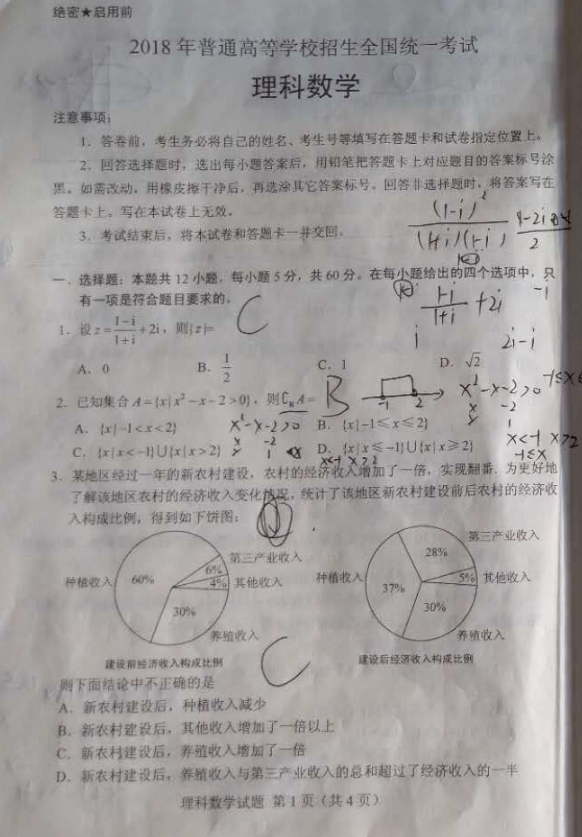 绝密★启用前
2018年普通高等学校招生全国统一考试
理科数学
注意事项：
1．答卷前，考生务必将自己的姓名、考生号等填写在答题卡和试卷指定位置上。
2．回答选择题时，选出每小题答案后，用铅笔把答题卡上对应题目的答案标号涂
黑。如需改动，用橡皮擦干净后，再选涂其它答案标号。回答非选择题时，将答案写在
答题卡上。写在本试卷上无效。
3．考试结束后，将本试卷和答题卡一并交回。
(1-i)²
(1+i)(1-i)
2
一、选择题：本题共12小题，每小题5分，共60分。在每小题给出的四个选项中，只
有一项是符合题目要求的。
1-i/1+i +2i
-1
1．设z=1-i/1+i+2i，则|z|= C
i 2i-i
A．0 B．1/2 C．1 D．√2
2．已知集合A={x|x²-x-2>0}，则∁RA= B
-1 2 x²-x-2>0
A．{x|-1<x<2} B．{x|-1≤x≤2}
x²-x-2>0
C．{x|x<-1}∪{x|x>2} D．{x|x≤-1}∪{x|x≥2}
x<-1 x>2
x<-1 x>2
-1≤x
3．某地区经过一年的新农村建设，农村的经济收入增加了一倍，实现翻番．为更好地
了解该地区农村的经济收入变化情况，统计了该地区新农村建设前后农村的经济收
入构成比例，得到如下饼图：
第三产业收入
6%
4% 其他收入
种植收入 60%
30%
养殖收入
建设前经济收入构成比例
第三产业收入
28%
5% 其他收入
种植收入 37%
30%
养殖收入
建设后经济收入构成比例
则下面结论中不正确的是 C
A．新农村建设后，种植收入减少
B．新农村建设后，其他收入增加了一倍以上
C．新农村建设后，养殖收入增加了一倍
D．新农村建设后，养殖收入与第三产业收入的总和超过了经济收入的一半
理科数学试题 第1页（共4页）